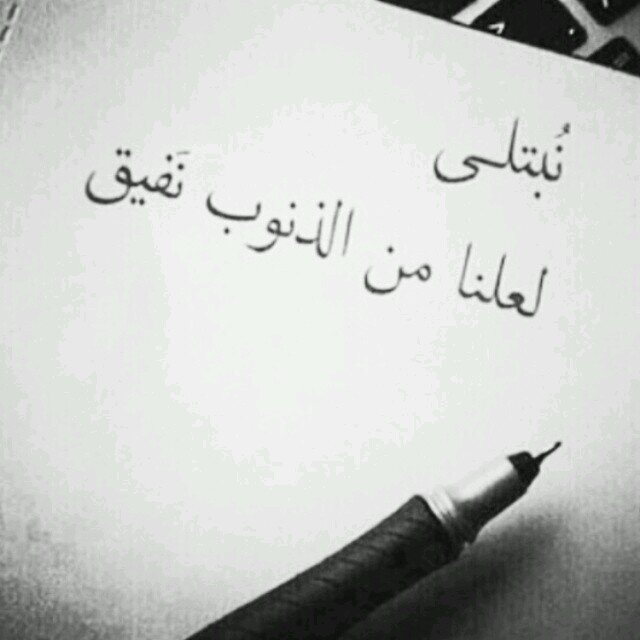 نُبتلــى
لعلنا من الذنوب نَفيق